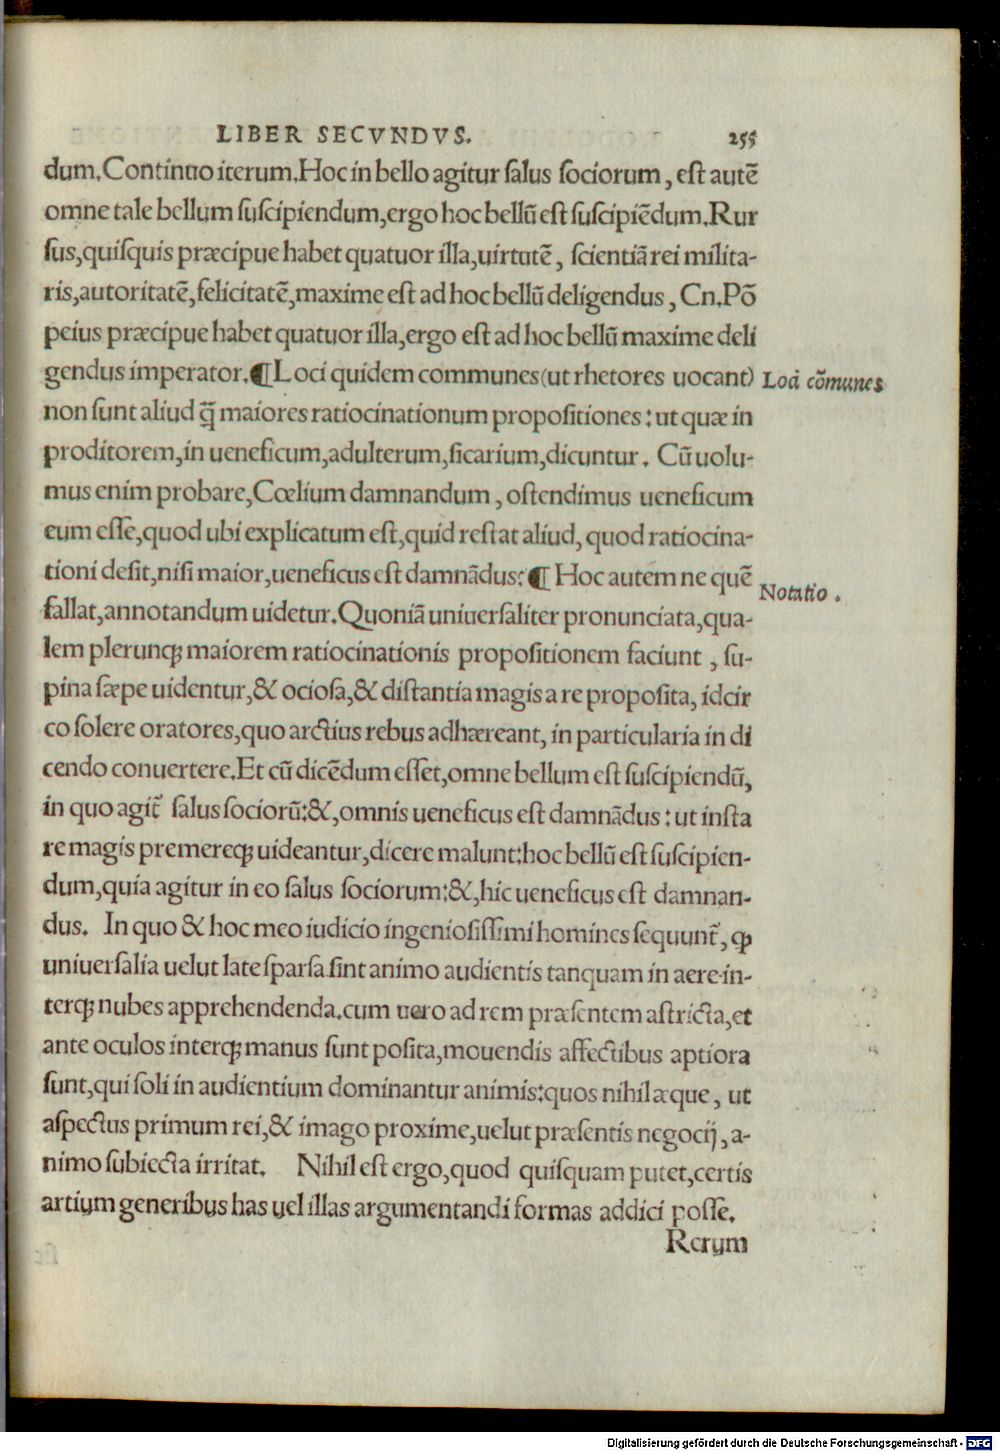 LIBER SECVNDVS. 255
dum. Continuo iterum. Hoc in bello agitur ſalus ſociorum, eſt autē
omne tale bellum ſuſcipiendum, ergo hoc bellū eſt ſuſcipiēdum. Rur
ſus, quiſquis præcipue habet quatuor illa, uirtutē, ſcientiā rei milita-
ris, autoritatē, felicitatē, maxime eſt ad hoc bellū deligendus, Cn. Pō
peius præcipue habet quatuor illa, ergo eſt ad hoc bellū maxime deli
gendus imperator. ¶ Loci quidem communes (ut rhetores uocant) Loci cōmunes
non ſunt aliud q̄ maiores ratiocinationum propoſitiones: ut quæ in
proditorem, in ueneficum, adulterum, ſicarium, dicuntur. Cū uolu-
mus enim probare, Cœlium damnandum, oſtendimus ueneficum
eum eſſe, quod ubi explicatum eſt, quid reſtat aliud, quod ratiocina-
tioni deſit, niſi maior, ueneficus eſt damnādus: ¶ Hoc autem ne quē
Notatio.
fallat, annotandum uidetur. Quoniā uniuerſaliter pronunciata, qua-
lem plerunq; maiorem ratiocinationis propoſitionem faciunt, ſu-
pina ſæpe uidentur, & ocioſa, & diſtantia magis a re propoſita, idcir
co ſolere oratores, quo arctius rebus adhæreant, in particularia in di
cendo conuertere. Et cū dicēdum eſſet, omne bellum eſt ſuſcipiendū,
in quo agit᷑ ſalus ſociorū: &, omnis ueneficus eſt damnādus: ut inſta
re magis premereq; uideantur, dicere malunt: hoc bellū eſt ſuſcipien-
dum, quia agitur in eo ſalus ſociorum: &, hic ueneficus eſt damnan-
dus. In quo & hoc meo iudicio ingenioſiſſimi homines ſequunt᷑, ꝙ
uniuerſalia uelut late ſparſa ſint animo audientis tanquam in aere in-
terq; nubes apprehendenda. cum uero ad rem præſentem aſtricta, et
ante oculos interq; manus ſunt poſita, mouendis affectibus aptiora
ſunt, qui ſoli in audientium dominantur animis: quos nihil æque, ut
aſpectus primum rei, & imago proxime, uelut præſentis negocij, a-
nimo ſubiecta irritat. Nihil eſt ergo, quod quiſquam putet, certis
artium generibus has uel illas argumentandi formas addici poſſe.
Rerum
Digitalisierung gefördert durch die Deutsche Forschungsgemeinschaft - DFG